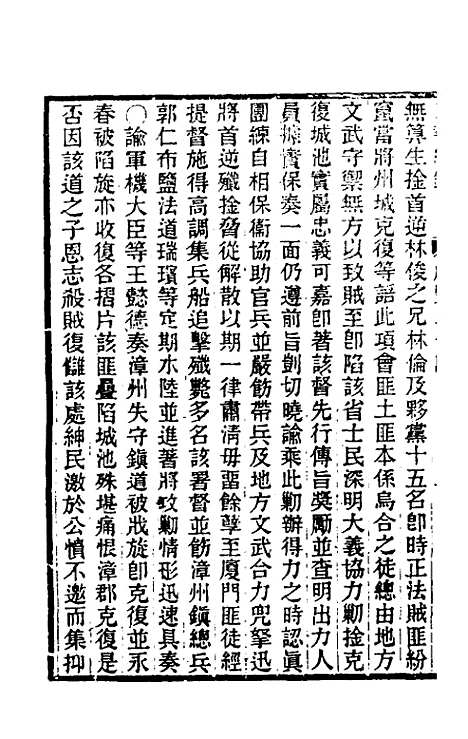 無算生擒首逆林俊之兄林倫及夥黨十五名卽時正法賊匪紛
竄當將州城克復等語此項會匪土匪本係烏合之徒總由地方
文武守禦無方以致賊至卽陷該省士民深明大義協力勦捦克
復城池實屬忠義可嘉卽著該督先行傳旨奬勵並查明出力人
員據實保奏一面仍遵前旨剴切曉諭乘此勦辦得力之時認眞
團練自相保衞協助官兵並嚴飭帶兵及地方文武合力兜拏迅
將首逆殲捦脅從解散以期一律肅淸毋畱餘孽至厦門匪徒經
提督施得高調集兵船追擊殲斃多名該署督並飭漳州鎭總兵
郭仁布鹽法道瑞璸等定期水陸並進著將攻勦情形迅速具奏
〇諭軍機大臣等王懿德奏漳州失守鎭道被戕旋卽克復並永
春被陷旋亦收復各摺片該匪疊陷城池殊堪痛恨漳郡克復是
否因該道之子恩志殺賊復讎該處紳民激於公憤不邀而集抑